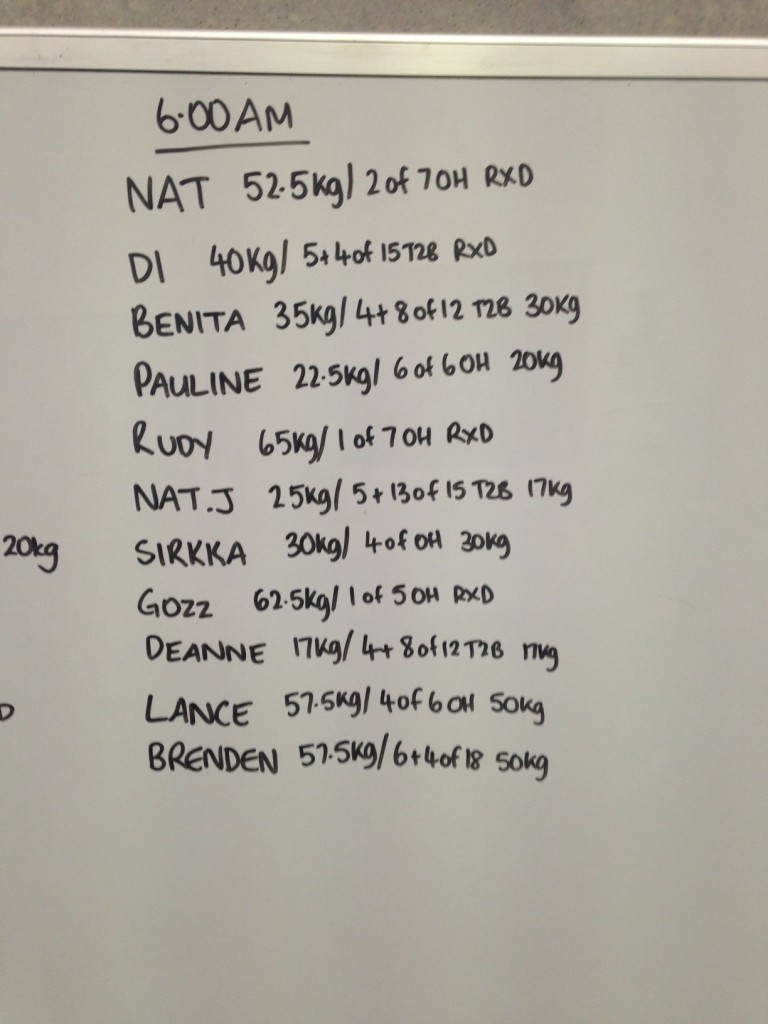 6.00AM
NAT 52.5kg/ 2 of 7 OH RXD
DI 40kg/ 5+4 of 15 T2B RXD
BENITA 35kg/ 4+8 of 12 T2B 30kg
PAULINE 22.5kg/ 6 of 6 OH 20kg
RUDY 65kg/ 1 of 7 OH RXD
NAT.J 25kg/ 5+13 of 15 T2B 17kg
20kg SIRKKA 30kg/ 4 of OH 30kg
GOZZ 62.5kg/ 1 of 5 OH RXD
DEANNE 17kg/ 4+8 of 12 T2B 17kg
D LANCE 57.5kg/ 4 of 6 OH 50kg
BRENDEN 57.5kg/ 6+4 of 18 50kg